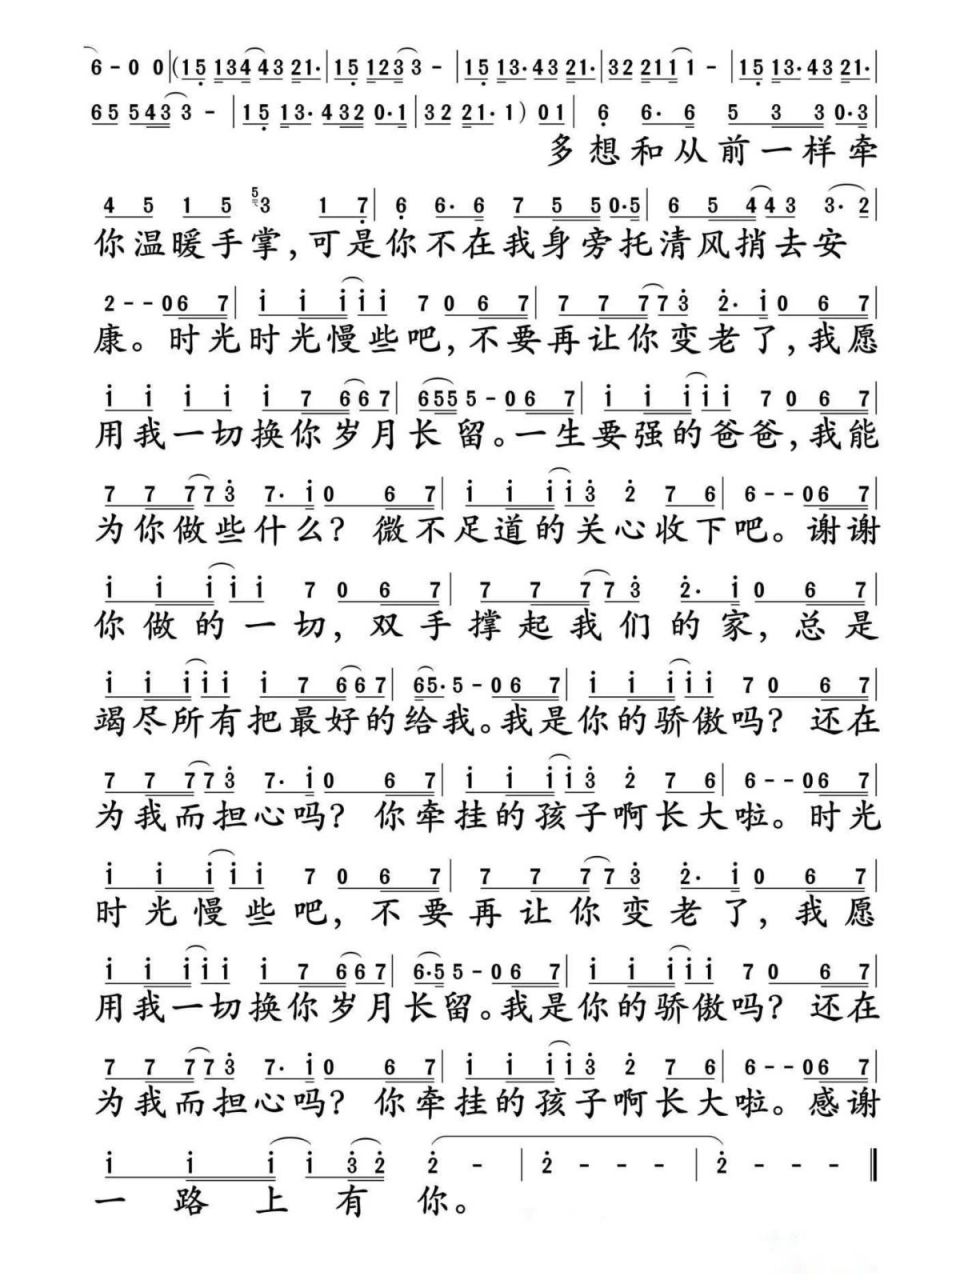 6 - 0 0 | (15 134 43 21· | 15 123 3 - | 15 13· 43 21· | 32 211 1 - | 15 13· 43 21· |
65 543 3 - | 15 13· 432 0·1 | 32 21· 1) 01 | 6 6· 6 5 3 3 0·3 |
多想和从前一样牵
4 5 1 5 53 1 7 | 6 6· 6 7 5 5 0·5 | 6 5 4 4 3 3· 2 |
你温暖手掌,可是你不在我身旁托清风捎去安
2 - - 06 7 | i i i i i 7 0 6 7 | 7 7 7 7 3 2· i 0 6 7 |
康。时光时光慢些吧,不要再让你变老了,我愿
i i i i i 7 6 6 7 | 655 5 - 06 7 | i i i i i 7 0 6 7 |
用我一切换你岁月长留。一生要强的爸爸,我能
7 7 7 7 3 7· i 0 6 7 | i i i i 3 2 7 6 | 6 - - 06 7 |
为你做些什么? 微不足道的关心收下吧。谢谢
i i i i i 7 0 6 7 | 7 7 7 7 3 2· i 0 6 7 |
你做的一切,双手撑起我们的家,总是
i i i i i i 7 6 6 7 | 65· 5 - 06 7 | i i i i i 7 0 6 7 |
竭尽所有把最好的给我。我是你的骄傲吗? 还在
7 7 7 7 3 7· i 0 6 7 | i i i i 3 2 7 6 | 6 - - 06 7 |
为我而担心吗? 你牵挂的孩子啊长大啦。时光
i i i i i 7 0 6 7 | 7 7 7 7 3 2· i 0 6 7 |
时光慢些吧,不要再让你变老了,我愿
i i i i i i 7 6 6 7 | 6·5 5 - 06 7 | i i i i i 7 0 6 7 |
用我一切换你岁月长留。我是你的骄傲吗? 还在
7 7 7 7 3 7· i 0 6 7 | i i i i 3 2 7 6 | 6 - - 06 7 |
为我而担心吗? 你牵挂的孩子啊长大啦。感谢
i i i i 3 2 2 - | 2 - - - | 2 - - - ‖
一路上有你。